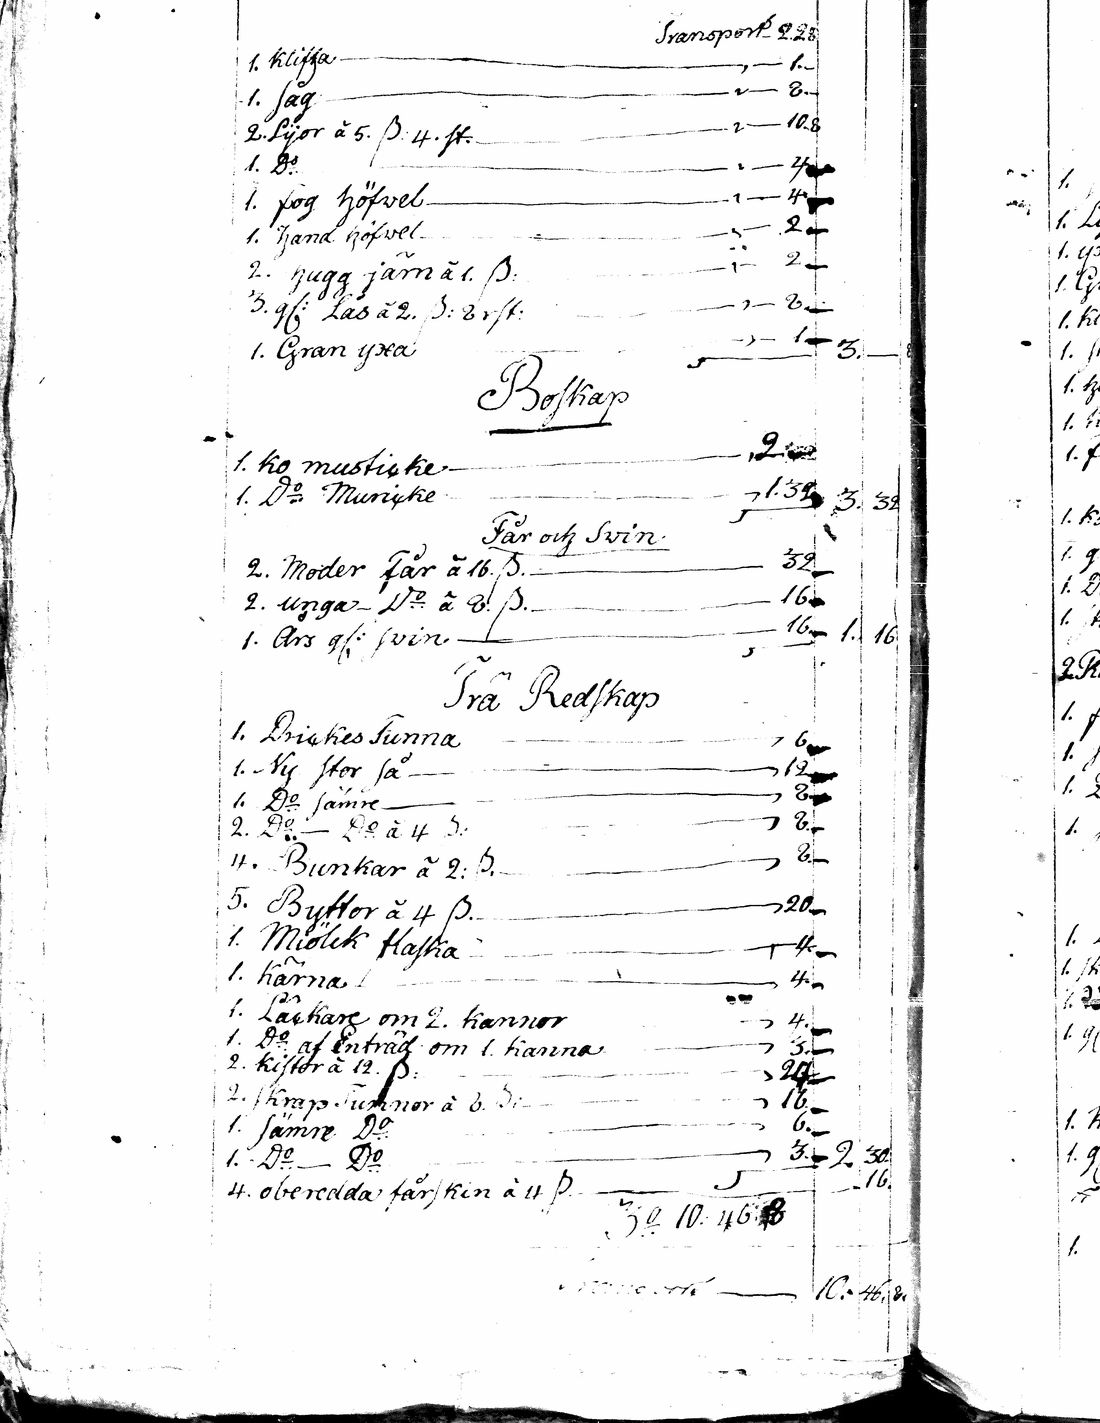 Transport 2.28
1. Klifza — 1.-
1. Såg — 8.-
2. Lijor à 5. ß: 4. st. — 10.8
1. Do — 4.-
1. fog Höfvel — 4.-
1. Hand Höfvel — 2.-
2. Hugg järn à 1. ß: — 2.-
3. gl: Lås à 2. ß: 8 rst: — 8.-
1. Gran yxa — 1.- 3. — 8
Boskap
1. Ko musticke — 2.
1. Do Muricke — 1.32 3. 32
Får och Svin
2. Moder Får à 16. ß. — 32
2. Unga Do à 8. ß. — 16
1. Års gl: Svin — 16 1. 16
Trä Redskap
1. Drickes Tunna — 6
1. Ny stor så — 12
1. Do sämre — 8
2. Do — Do à 4 ß: — 8.
4. Bunkar à 2: ß. — 8
5. Byttor à 4 ß. — 20
1. Miölck flaska — 4.
1. Kärna — 4.
1. Läckare om 2. Kannor — 4.
1. Do af Enträd om 1. Kanna — 3.
2. Kistor à 12. ß: — 24
2. skrap Tunnor à 8. ß: — 16
1. sämre Do — 6.
1. Do — Do — 3. 2. 30.
4. oberedda fårskin à 4 ß — 16.
10. 46. 8
— 10. 46. 8.
1.
1.
1. yx
1. Gr
1. Kl
1.
1.
1.
1. f
1. Ko
1. g
1. D
1.
2. K
1. f
1.
1.
1.
1.
1. sk
1.
1. gl
1.
1. g
1.